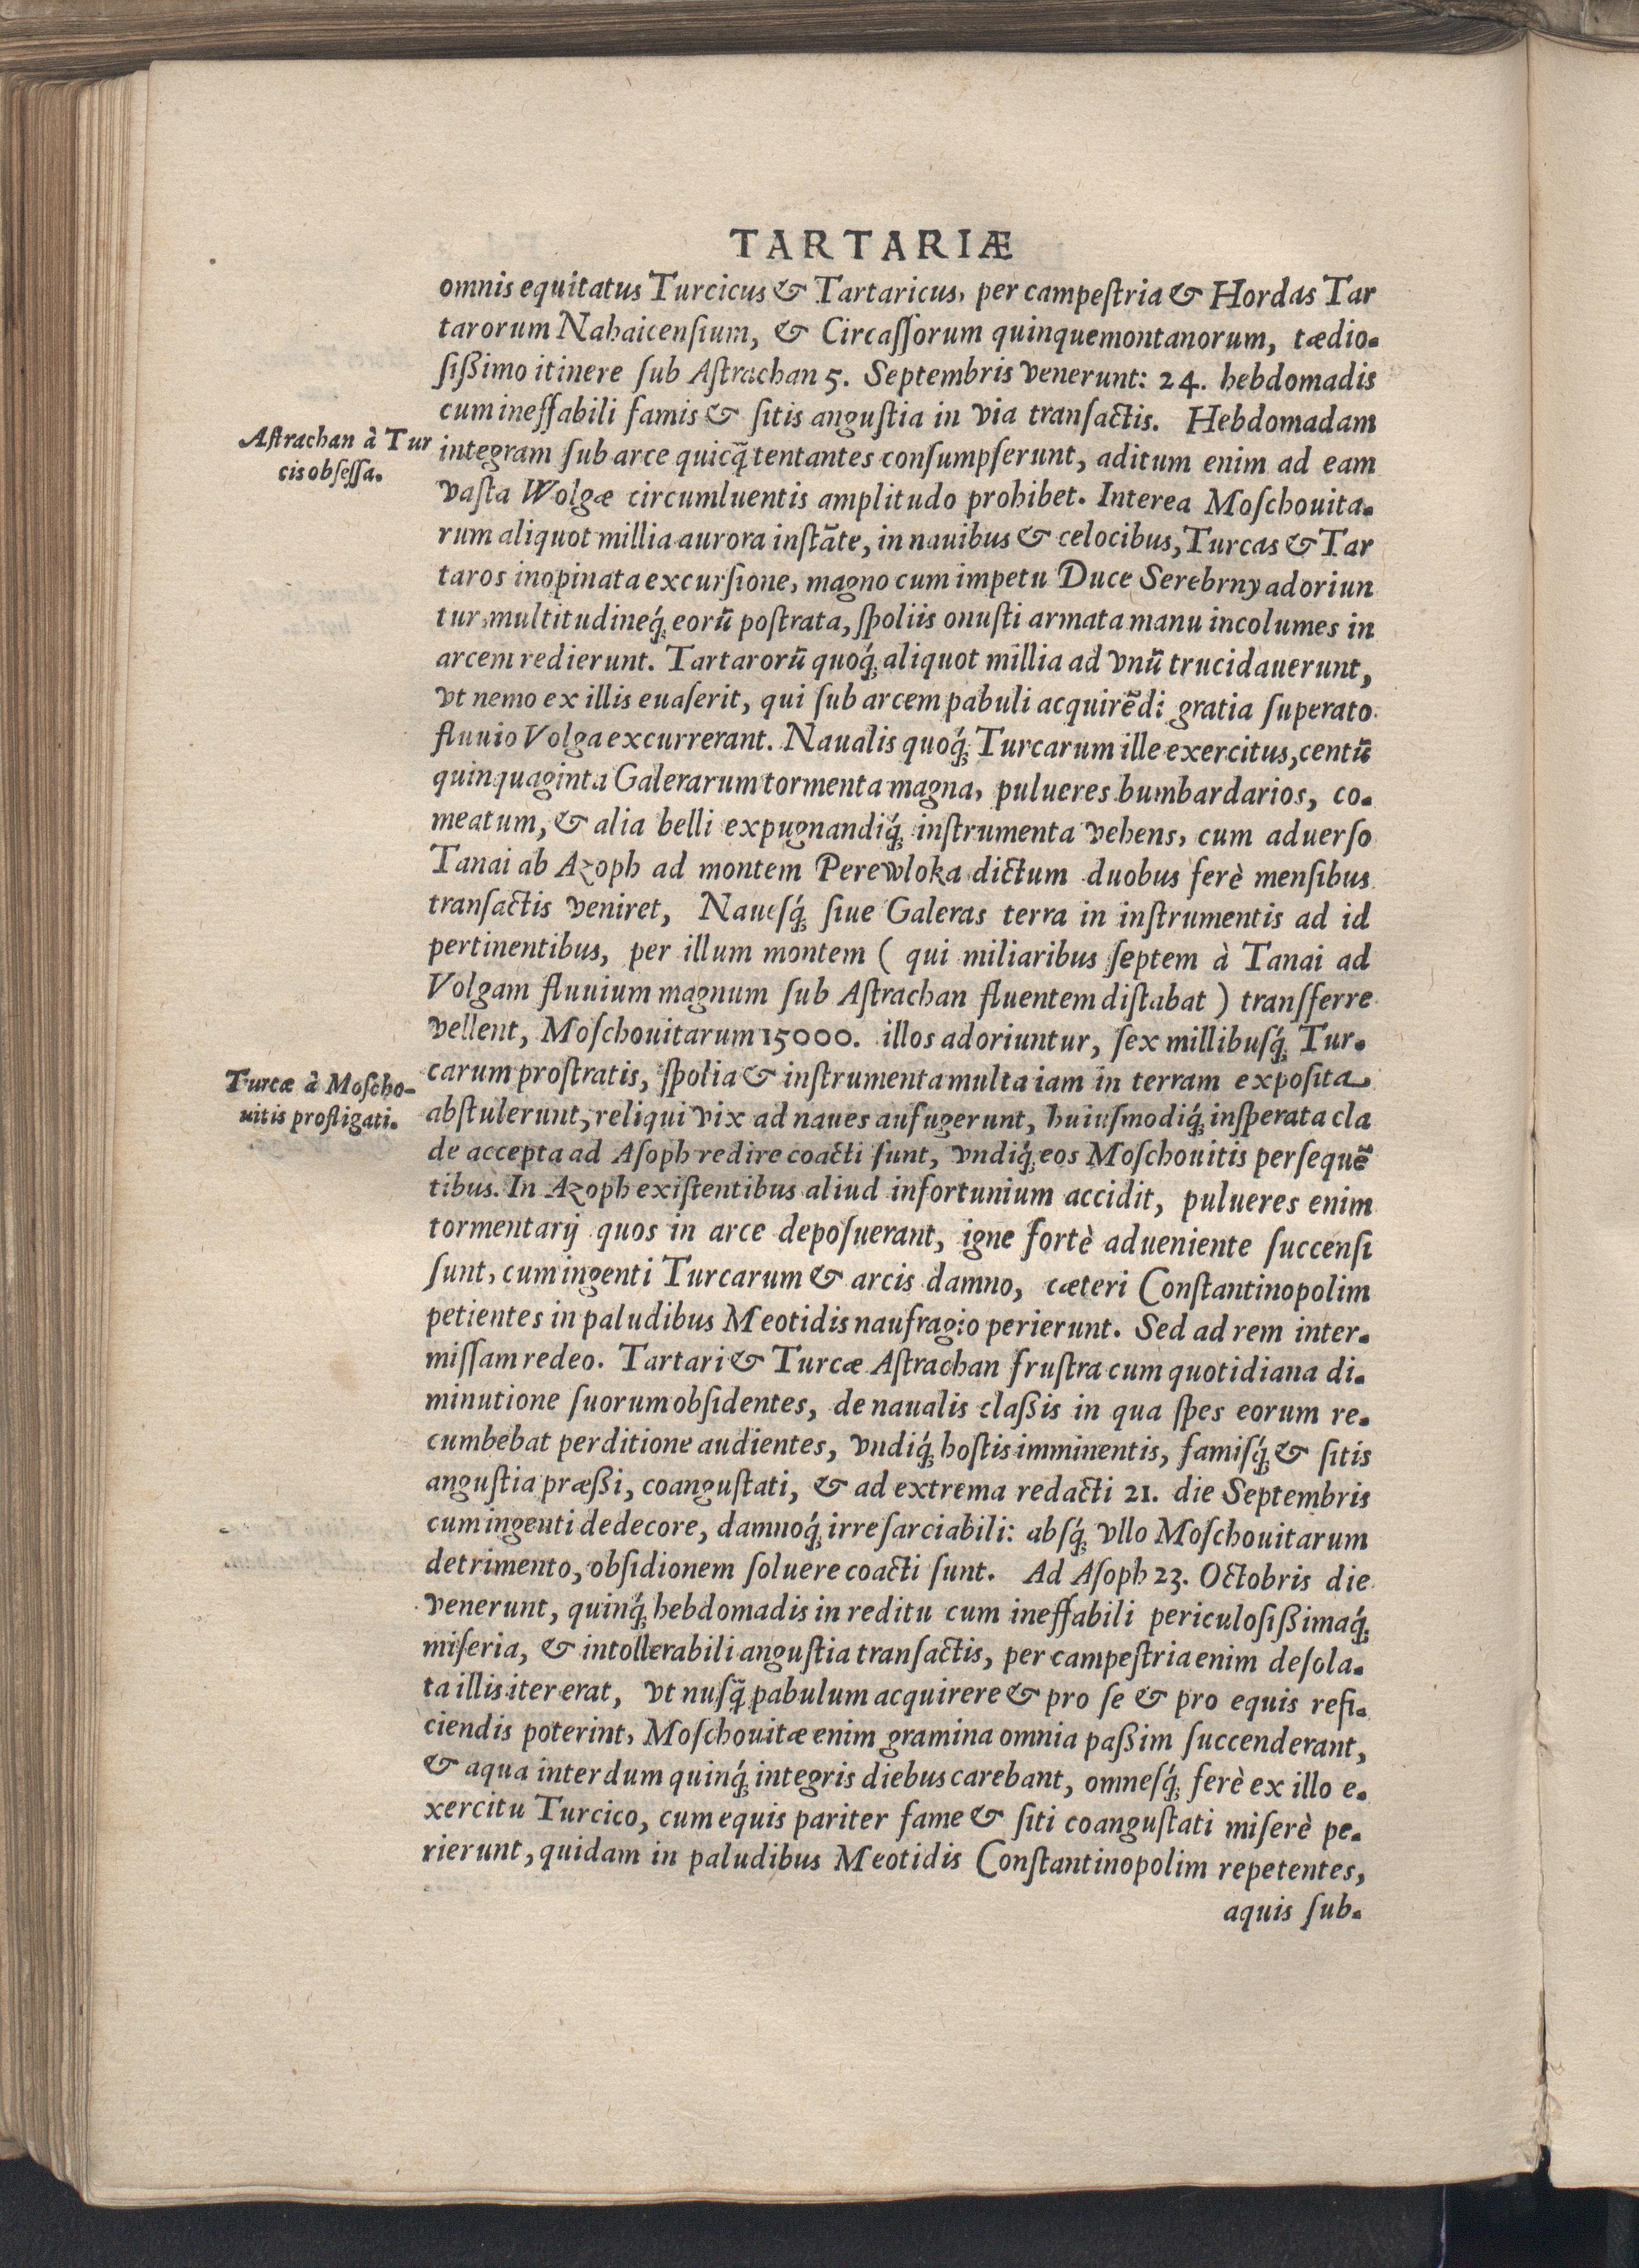 TARTARIÆ
omnis equitatus Turcicus & Tartaricus, per campeſtria & Hordas Tar
tarorum Nahaicenſium, & Circaſſorum quinquemontanorum, tædio-
ſißimo itinere ſub Aſtrachan 5. Septembris venerunt: 24. hebdomadis
cum ineffabili famis & ſitis anguſtia in via tranſactis. Hebdomadam
Aſtrachan à Tur
cis obſeſſa.
integram ſub arce quicq̃ tentantes conſumpſerunt, aditum enim ad eam
vaſta Wolgæ circumluentis amplitudo prohibet. Interea Moſchouita-
rum aliquot millia aurora inſtãte, in nauibus & celocibus, Turcas & Tar
taros inopinata excurſione, magno cum impetu Duce Serebrny adoriun
tur, multitudineq́; eorũ poſtrata, ſpoliis onuſti armata manu incolumes in
arcem redierunt. Tartarorũ quoq́; aliquot millia ad vnũ trucidauerunt,
vt nemo ex illis euaſerit, qui ſub arcem pabuli acquirẽdi gratia ſuperato
fluuio Volga excurrerant. Naualis quoq́; Turcarum ille exercitus, centũ
quinquaginta Galerarum tormenta magna, pulueres bumbardarios, co-
meatum, & alia belli expugnandiq́; inſtrumenta vehens, cum aduerſo
Tanai ab Azoph ad montem Perewloka dictum duobus ferè menſibus
tranſactis veniret, Naueſq́; ſiue Galeras terra in inſtrumentis ad id
pertinentibus, per illum montem ( qui miliaribus ſeptem à Tanai ad
Volgam fluuium magnum ſub Aſtrachan fluentem diſtabat ) tranſferre
vellent, Moſchouitarum 15000. illos adoriuntur, ſex millibuſq́; Tur-
Turcæ à Moſcho-
uitis profligati.
carum proſtratis, ſpolia & inſtrumenta multa iam in terram expoſita
abſtulerunt, reliqui vix ad naues aufugerunt, huiuſmodiq́; inſperata cla
de accepta ad Aſoph redire coacti ſunt, vndiq́; eos Moſchouitis perſequẽ
tibus. In Azoph exiſtentibus aliud infortunium accidit, pulueres enim
tormentarij quos in arce depoſuerant, igne fortè adueniente ſuccenſi
ſunt, cum ingenti Turcarum & arcis damno, cæteri Conſtantinopolim
petientes in paludibus Meotidis naufragio perierunt. Sed ad rem inter-
miſſam redeo. Tartari & Turcæ Aſtrachan fruſtra cum quotidiana di-
minutione ſuorum obſidentes, de naualis claßis in qua ſpes eorum re-
cumbebat perditione audientes, vndiq́; hoſtis imminentis, famiſq́; & ſitis
anguſtia præßi, coanguſtati, & ad extrema redacti 21. die Septembris
cum ingenti dedecore, damnoq́; irreſarciabili: abſq́; vllo Moſchouitarum
detrimento, obſidionem ſoluere coacti ſunt. Ad Aſoph 23. Octobris die
venerunt, quinq́; hebdomadis in reditu cum ineffabili periculoſißimaq́;
miſeria, & intollerabili anguſtia tranſactis, per campeſtria enim deſola-
ta illis iter erat, vt nuſq̃ pabulum acquirere & pro ſe & pro equis refi-
ciendis poterint, Moſchouitæ enim gramina omnia paßim ſuccenderant,
& aqua interdum quinq́; integris diebus carebant, omneſq́; ferè ex illo e-
xercitu Turcico, cum equis pariter fame & ſiti coanguſtati miſerè pe-
rierunt, quidam in paludibus Meotidis Conſtantinopolim repetentes,
aquis ſub-